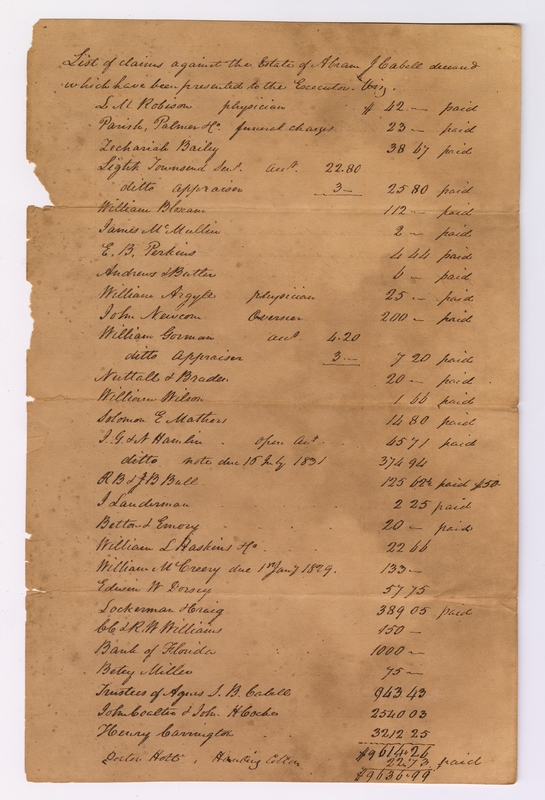 List of claims against the Estate of Abram J Cabell deceased
which have been presented to the Executor. Viz
L M Robison physician $ 42 — paid
Parish, Palmer & Co. funeral charges 23 — paid
Zechariah Bailey 38 67 paid
Light Townsend Senr. acct. 22.80
ditto appraiser 3 — 25 80 paid
William Bloxam 112 — paid
James McMullin 2 — paid
E. B. Perkins 4 44 paid
Andrews & Butler 6 — paid
William Argyle physician 25 — paid
John Newcom Overseer 200 — paid
William Gorman acct 4.20
ditto Appraiser 3 — 7 20 paid
Nuttall & Braden 20 — paid
William Wilson 1 66 paid
Solomon E Mathers 14 80 paid
I. G & N Hamlin open acct. 45 71 paid
ditto note due 15 July 1831 374 94
R B & J B Bull 125 62½ paid $50
I Lauderman 2 25 paid
Betton & Emory 20 — paid
William L Haskins & Co 22 66
William McCreery due 1st Jany 1829. 133 —
Edwin W Dorsey 57 75
Lockerman & Craig 389 05 paid
C C & R. W Williams 150 —
Bank of Florida 1000 —
Betsy Miller 75 —
Trustees of Agnes S. B. Cabell 943 43
John Coalter & John H Cocke 2540 03
Henry Carrington 3212 25
$9614.26
Doctor Holt, Cotton 22.73 paid
$9636.99